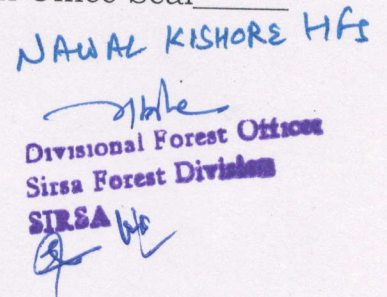 Office Seal______
NAWAL KISHORE HFS
Divisional Forest Officer
Sirsa Forest Division
SIRSA